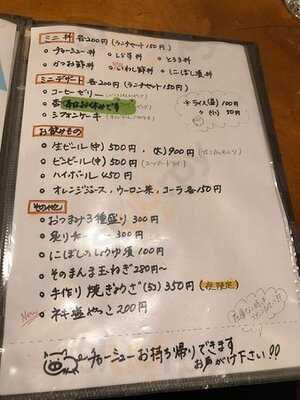 ミニ丼 各200円 (ランチセット150円)
○ チャーシュー丼 ○ しらす丼 ○ とろろ丼
○ かつお節丼 ○ いわし節丼 ○ にぼし漬丼
ミニデザート 各200円 (ランチセット150円)
○ コーヒーゼリー
本日お休みです
○ シフォンケーキ
○ ライス(普) 100円
○ 〃 (小) 50円
お飲みもの
○ 生ビール(中) 500円、(大) 900円
○ ビンビール(中) 500円 (スーパードライ)
○ ハイボール 450円
○ オレンジジュース、ウーロン茶、コーラ 各150円
その他
○ おつまみ3種盛り 300円
○ 炙りチャーシュー 300円
○ にぼししょうゆ漬 100円
○ そのまんま玉ねぎ 280円~
○ 手作り焼ぎょうざ(5コ) 350円 (夜限定)
New ○ ネギ盛やっこ 200円
チャーシューお持ち帰りできます
お声がけ下さい!!